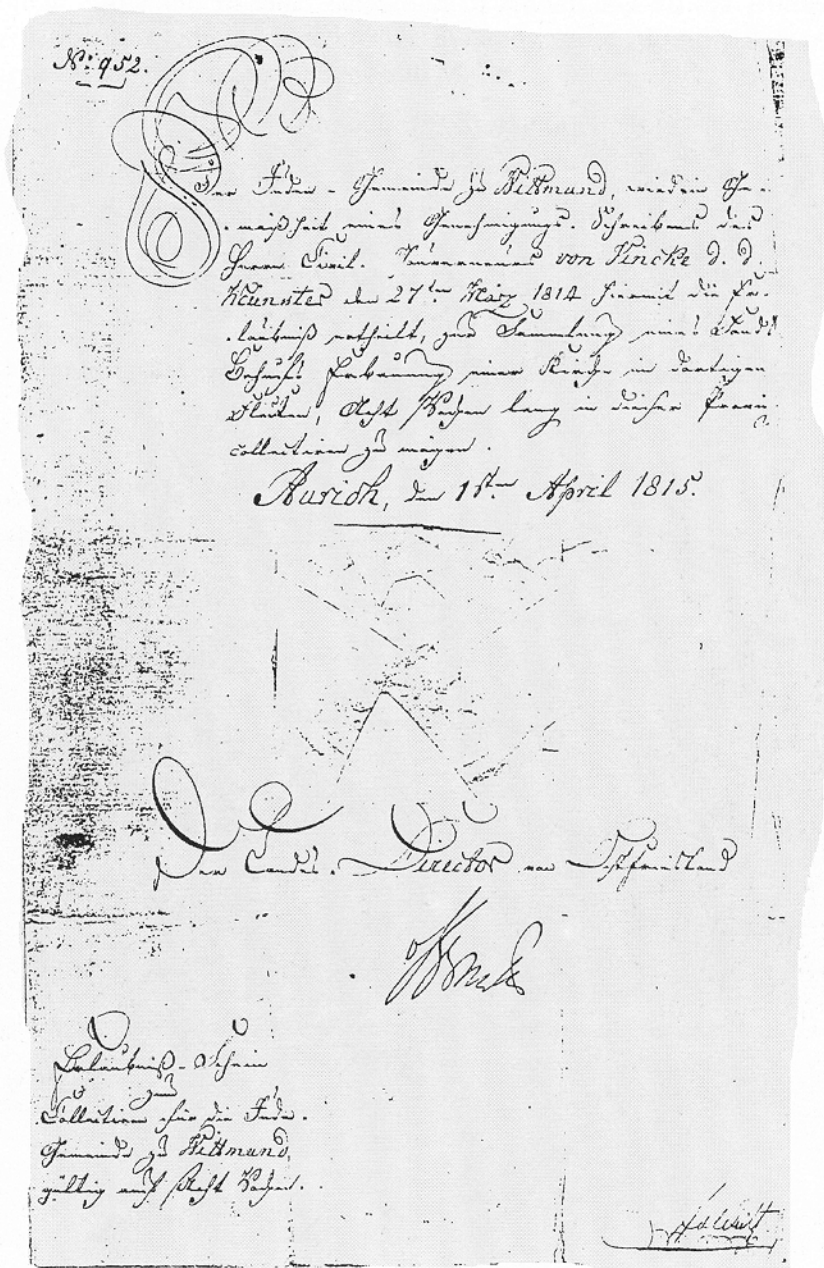 No: 952.
Der Juden-Gemeinde zu Wittmund, wird in Ge-
mäßheit eines Genehmigungs-Schreibens des
Herrn Civil-Gouverneurs von Vincke d. d.
Münster den 27ten März 1814 hiermit die Er-
laubniß ertheilt, zur Sammlung eines Fonds
Behufs Erbauung einer Kirche in dortigen
Flecken, Acht Wochen lang in dieser Provinz
collectiren zu mögen.
Aurich, den 1sten April 1815.
Der Landes-Director von Ostfriesland
Erlaubniß-Schein
zum
Collectiren für die Juden-
Gemeinde zu Wittmund,
gültig auf Acht Wochen.